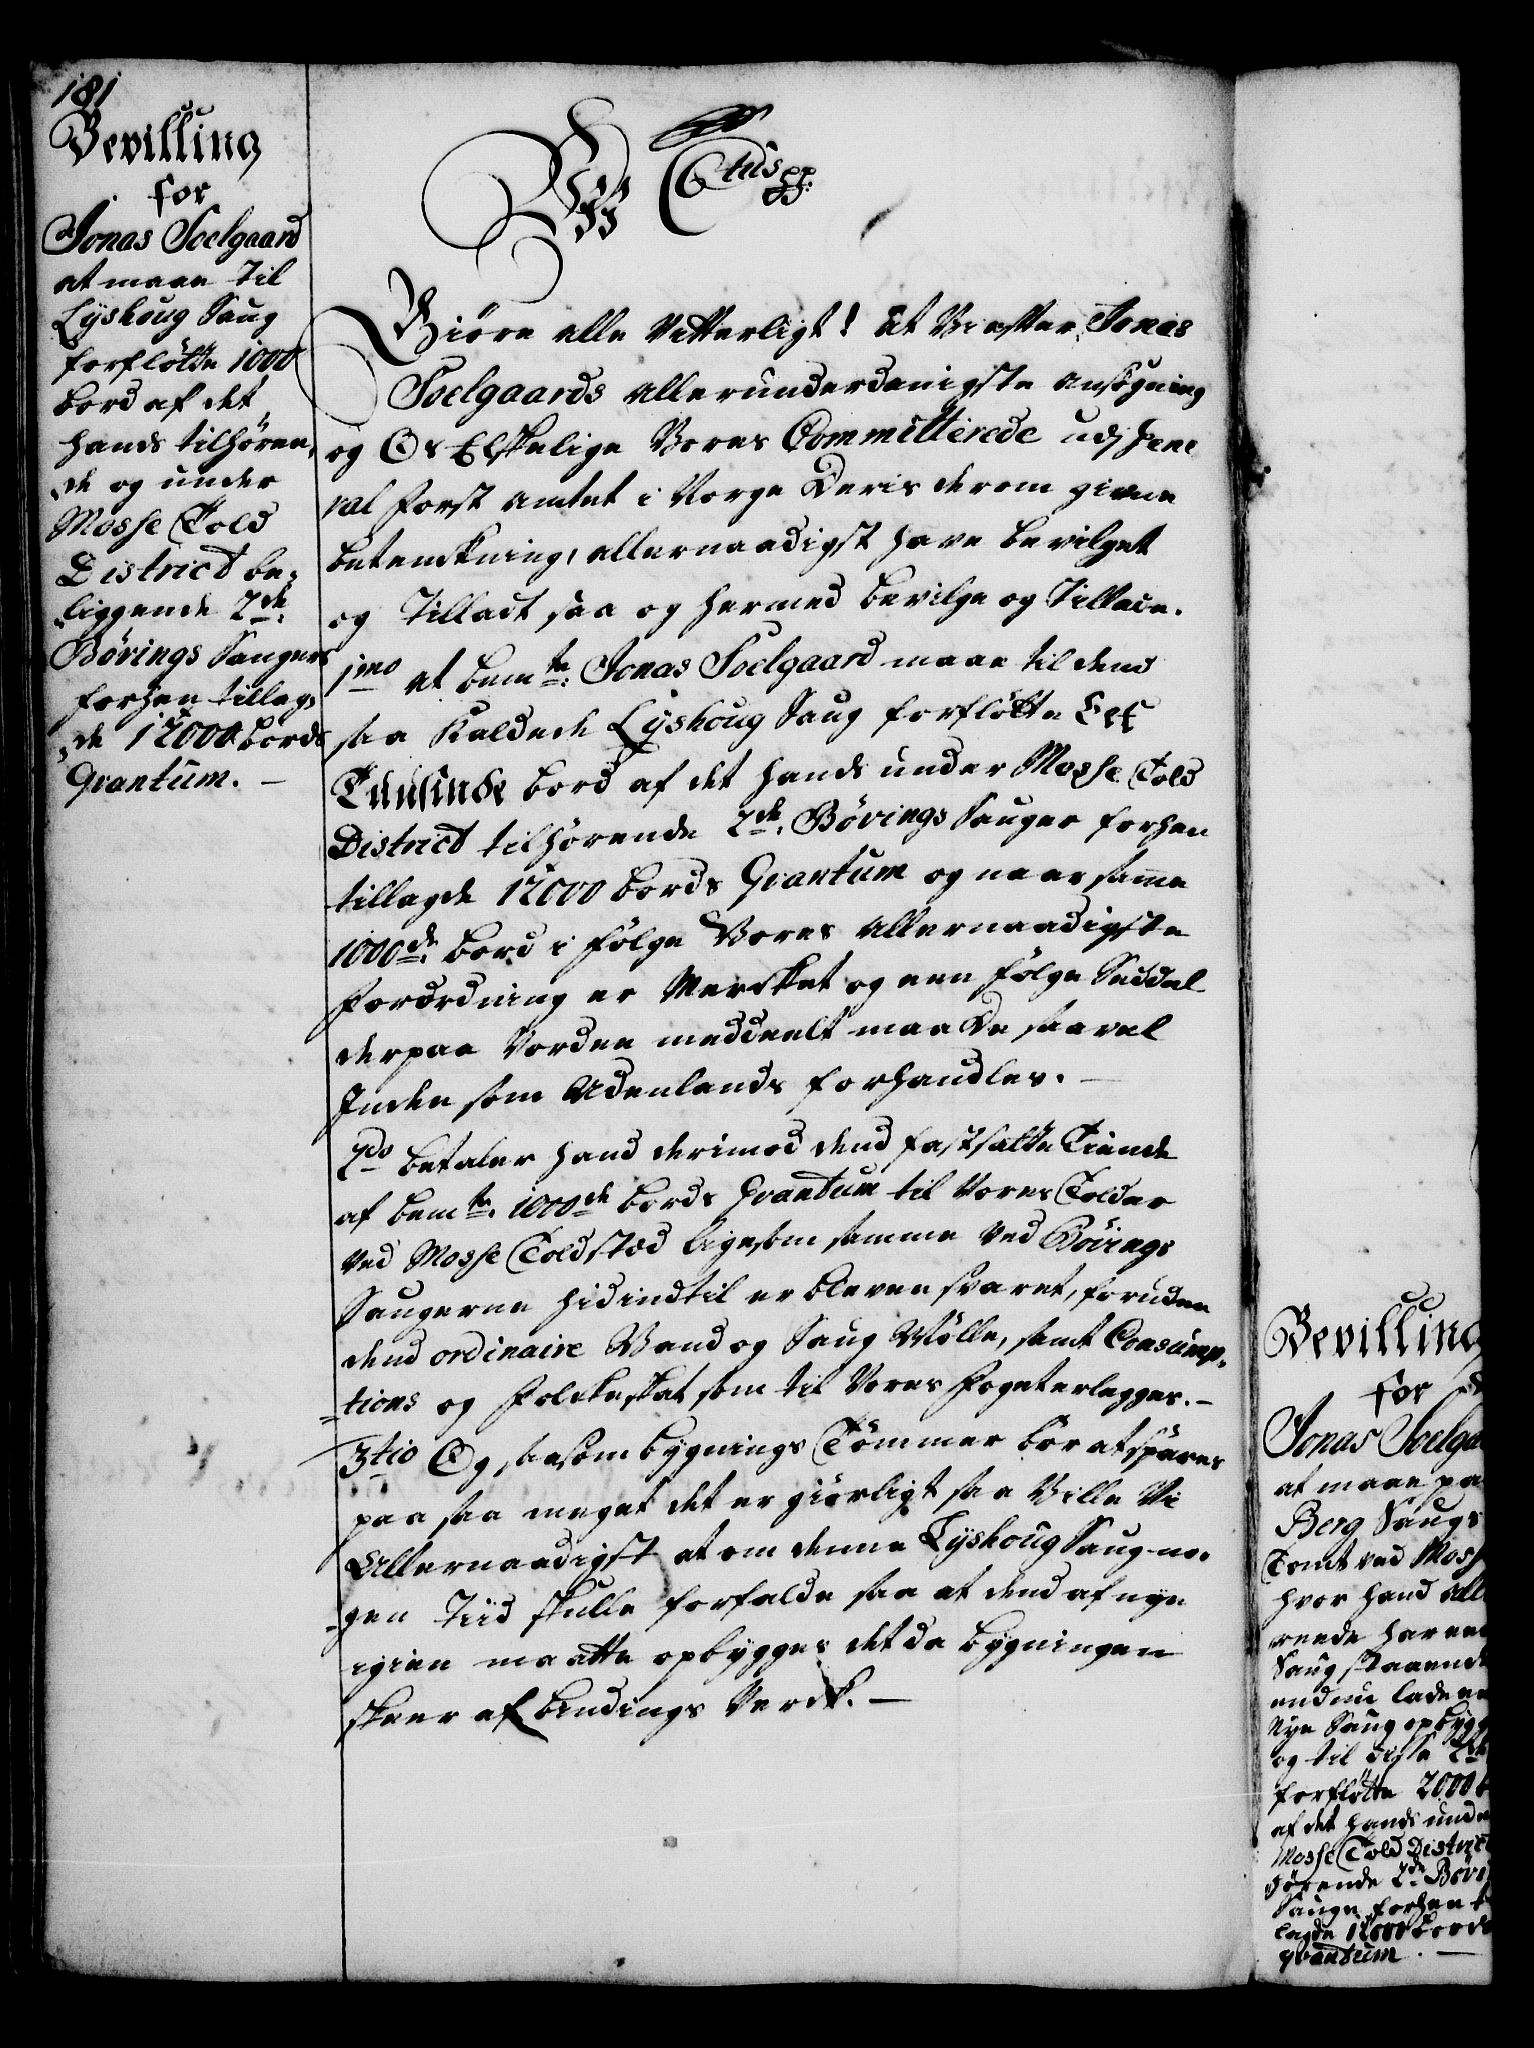 181
Bevilling
for
Jonas Soelgaard
at maae til
Lyshoug Saug
forflötte 1000
bord af det
hands tilhören,
de og under
Mosse Told
District be,
liggende 2de
Börings Sauger
forhen tillag,
de 12000 bords
Qvantum. —
Ctus pp.
Giöre alle Vitterligt! at Vi efter Jonas
Soelgaards allerunderdanigste ansögning
og Os Elskelige Vores Committerede udj Gene
ral Forst amtet i Norge Deris derom givne
betenckning, allernaadigst have bevilget
og Tilladt saa og hermed bevilge og Tillade.
1mo at bemte Jonas Soelgaard maae til dend
saa kaldede Lyshoug Saug forflötte Eet
Tuusinde bord af det hands under Mosse Told
District tilhörende 2de Börings Sauger forhen
tillagde 12000 bords Qvantum og naar samme
1000de bord i fölge Vores allernaadigste
Forordning er Mercket og een fölge Seddel
derpaa Vorden meddeelt maa De saavel
Inden som Udenlands forhandles. —
2do betaler hand derimod dend fastsatte Tiende
af bemte 1000de bords Qvantum til Vores Tolder
ved Mosse Toldsted ligesom samme ved Börings
Saugerne hidindtil er bleven svaret, foruden
dend ordinaire Vand og Saug Mölle, samt Consump,
tions og Folckeskat som til Vores Foget erlegges. —
3tio Og saasom bygnings Tömmer bör at spares
paa saa meget det er giörligt saa Ville Vi
Allernaadigst at om denne Lyshoug Saug no,
gen Tiid skulle forfalde saa at dend af nye
igien maatte opbygges det da bygningen
skeer af bindings Verck. —
Bevilling
for
Jonas Soelga
at maae pa
Berg Saugs
Tomt ved Moss
hvor hand alle
reede har een
Saug staaende
endnu lade een
Nye Saug opbygg
og til disse 2de
forflötte 2000 b
af det hands unde
Mosse Told District
hörende 2de Böri
Sauge forhen t
lagde 12000 bords
Qvantum. —